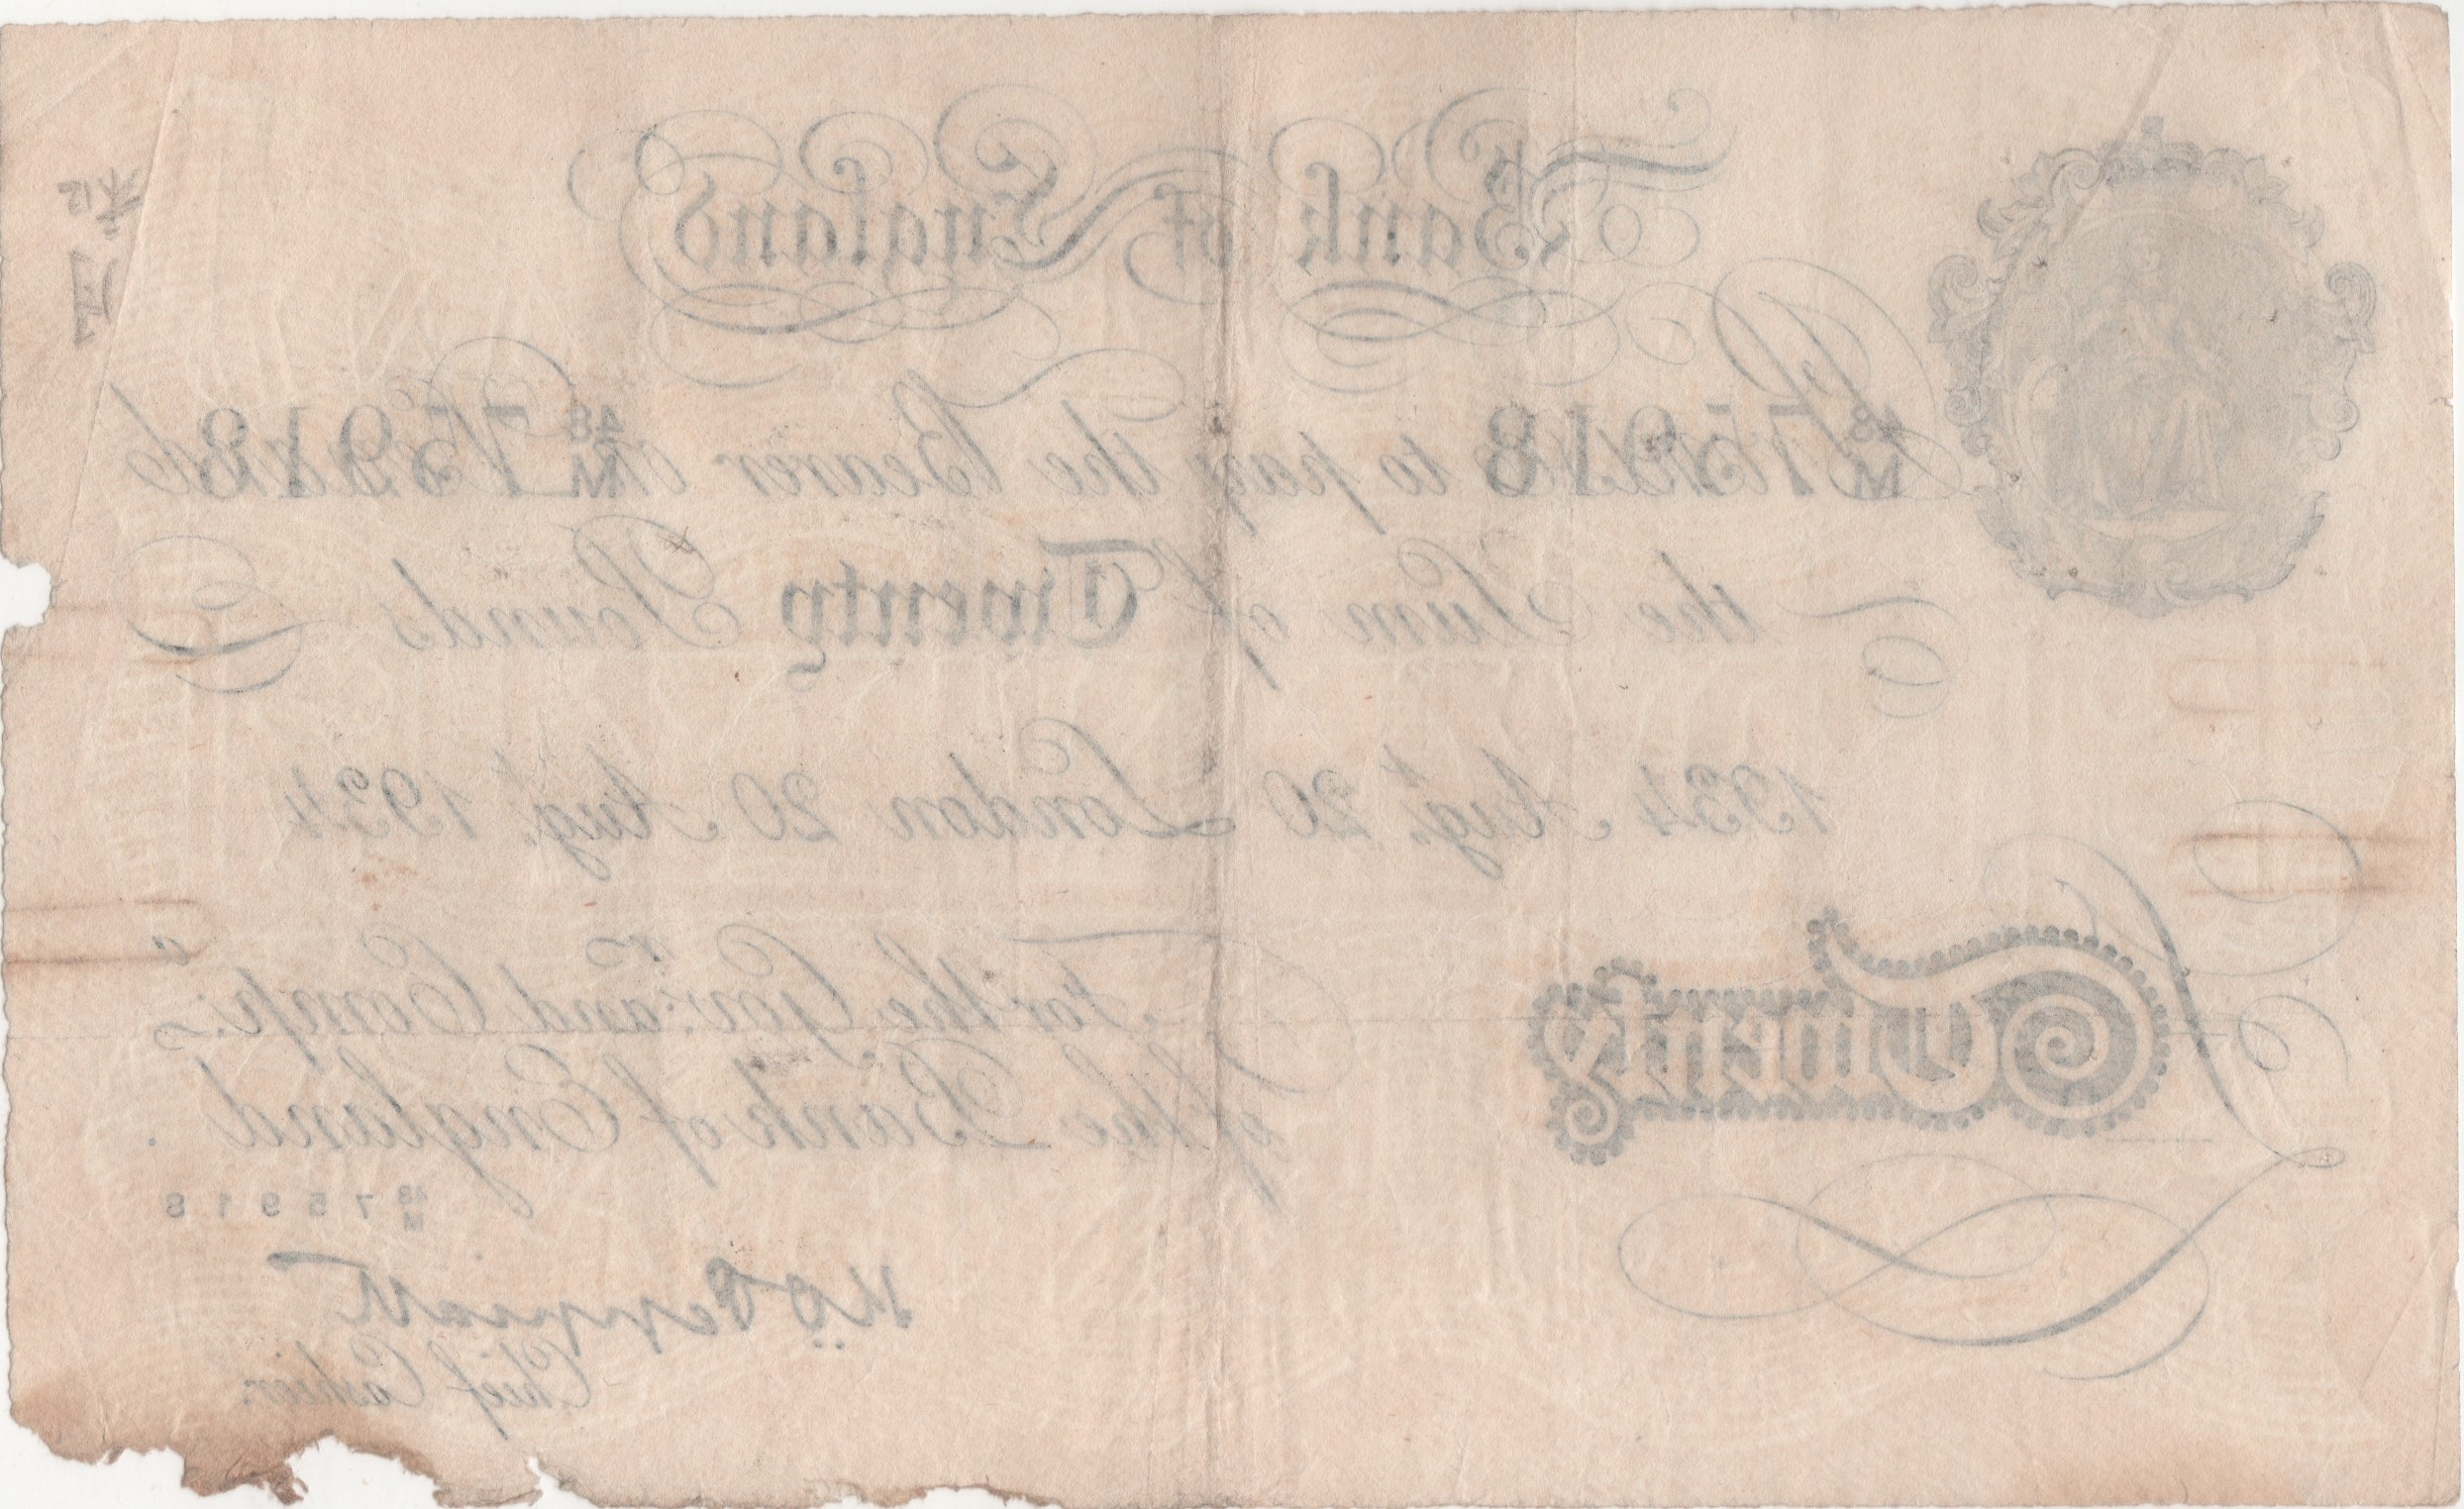 Bank of England
48
M 75918 Promise to pay the Bearer on Demand 48
M 75918
the Sum of Twenty Pounds
1934 Aug.t 20 London 20 Aug.t 1934
For the Gov.r and Comp.a
of the Bank of England.
Twenty
48
M 75918
Chief Cashier.